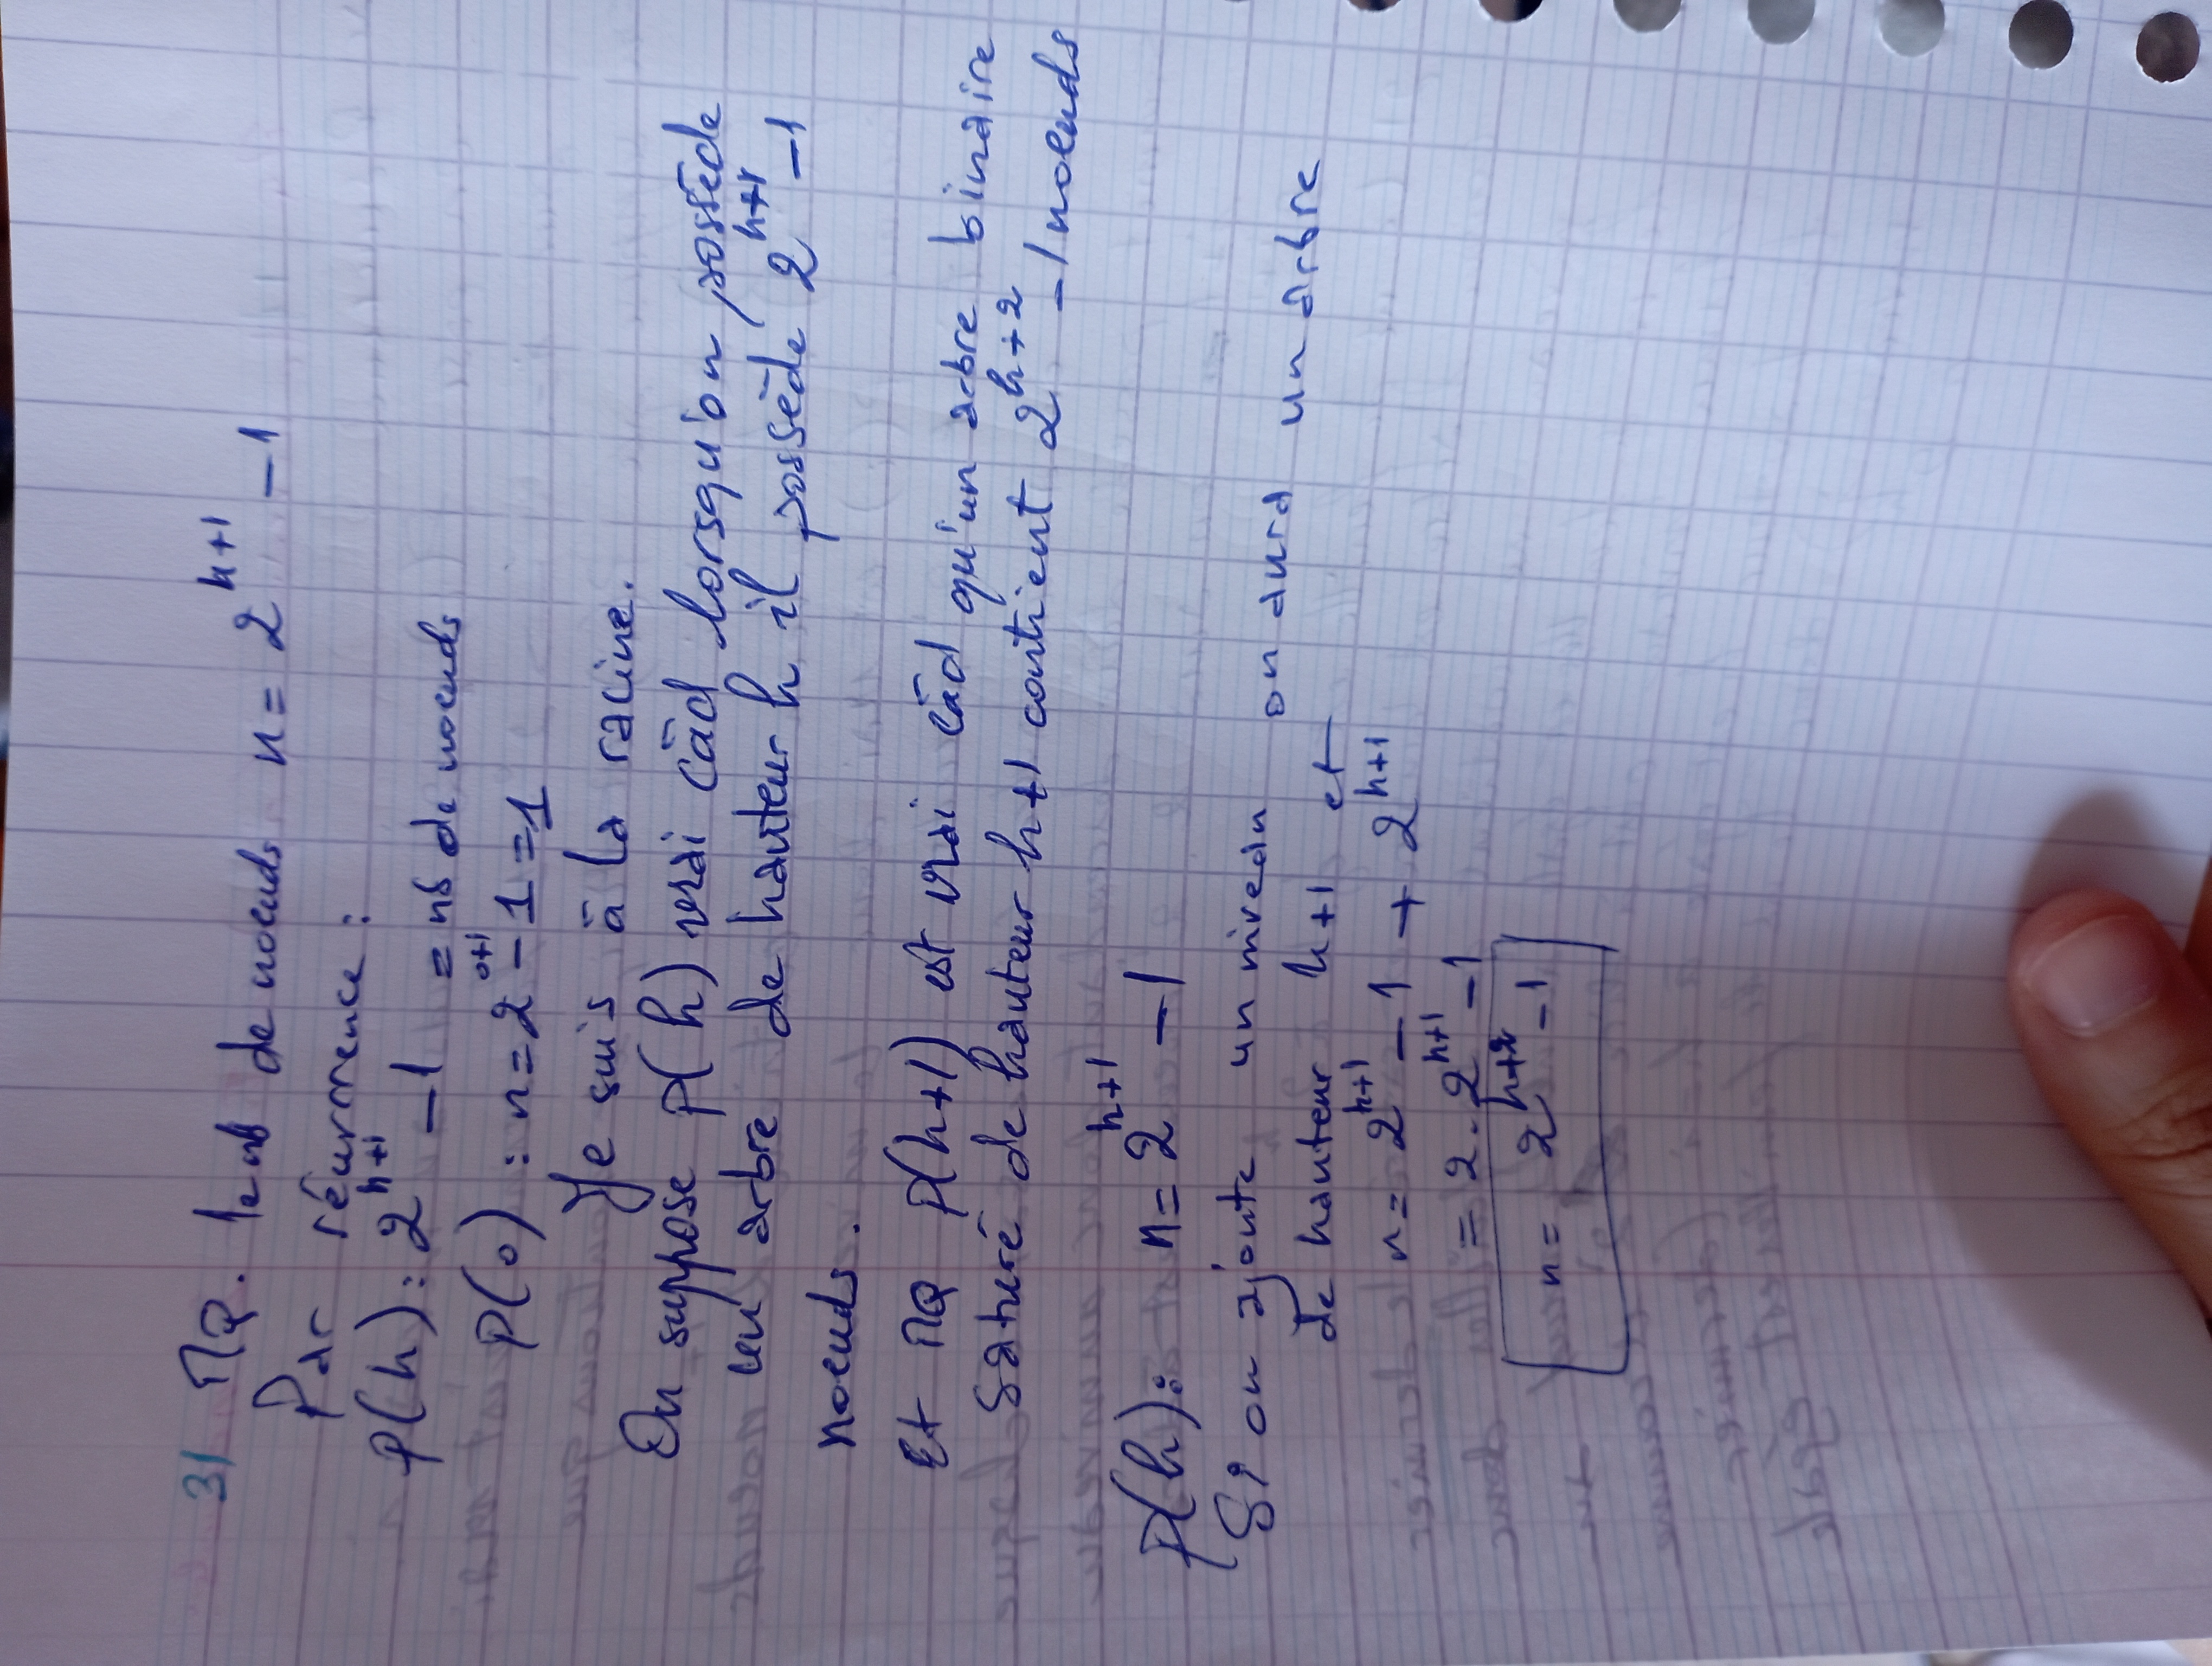 3/ MQ. le nb de noeuds n = 2^{h+1} - 1
Par réurrence :
P(h) : 2^{h+1} - 1 = nb de noeuds
P(0) : n = 2^{0+1} - 1 = 1
Je suis à la racine.
On suppose P(h) vrai càd lorsqu'on possède
un arbre de hauteur h il possède 2^{h+1} - 1
noeuds.
Et MQ P(h+1) est vrai càd qu'un arbre binaire
saturé de hauteur h+1 contient 2^{h+2} - 1 noeuds
P(h) : n = 2^{h+1} - 1
Si on ajoute un niveau on aura un arbre
de hauteur h+1 et
n = 2^{h+1} - 1 + 2^{h+1}
= 2 . 2^{h+1} - 1
n = 2^{h+2} - 1